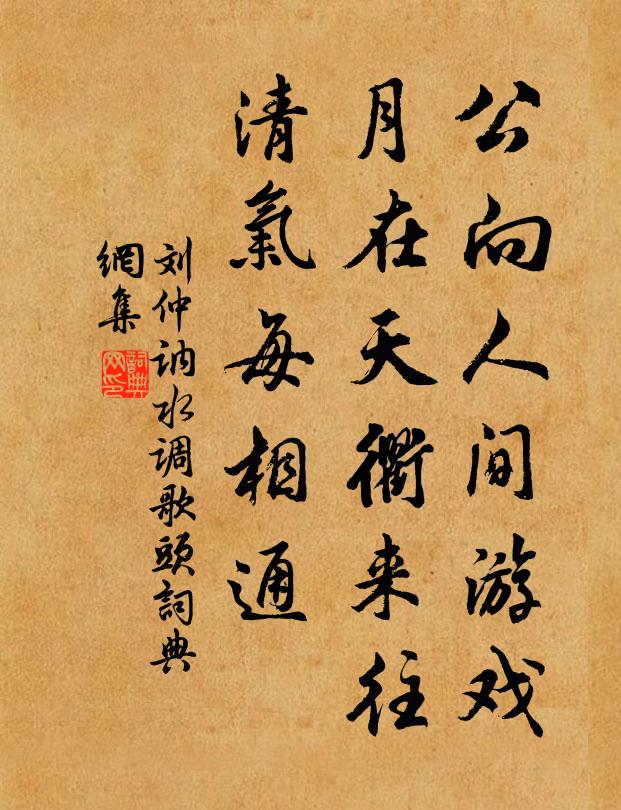 公向人间游戏
月在天衢来往
清氣每相通
刘仲讷水调歌頭詞典
網集
詞典網印